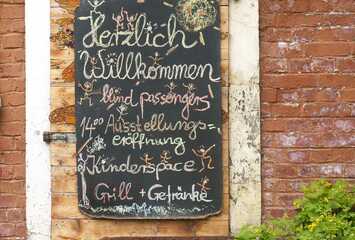 Herzlich
Willkommen
blind passengers
14⁰⁰ Ausstellungs-
eröffnung
Kinderspace
Grill + Getränke